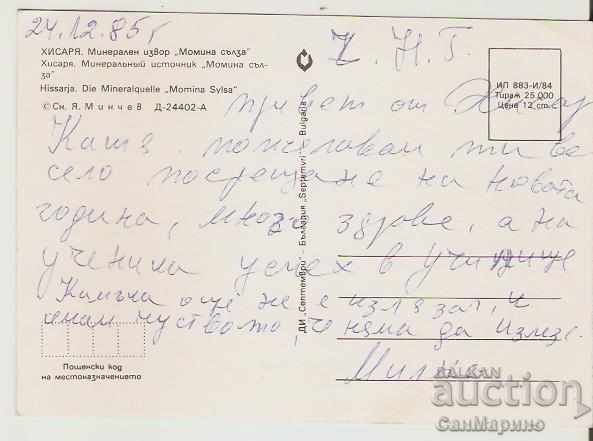 24.12.85 г
Ч. Н. Г.
ХИСАРЯ. Минерален извор „Момина сълза"
Хисаря. Минеральный источник „Момина съл-
за"
Hissarja. Die Mineralquelle „Momina Sylsa"
© Сн. Я. Минчев Д-24402-А
ИП 883-И/84
Тираж 25 000
Цена 12 ст.
ДИ „Септември" - България „Septemvri" - Bulgaria
привет от Хисар
Катя пожелавам ти ве
село посрещане на новата
година, много здраве, а на
ученика успех в училище
Камъка още не е излязъл, и
имам чуството, че няма да излезе.
Пощенски код
на местоназначението
BALKAN
auction
СанМарино